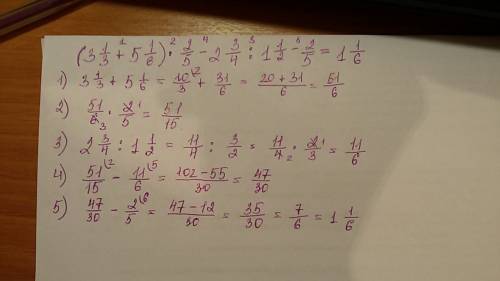 (3 1/3 +¹ 5 1/6) ·² 2/5 -⁴ 2 3/4 :³ 1 1/2 -⁵ 2/5 = 1 1/6
1) 3 1/3 + 5 1/6 = 10/3 \2 + 31/6 = 20+31/6 = 51/6
2) 51/6 3 · 2/5 1 = 51/15
3) 2 3/4 : 1 1/2 = 11/4 : 3/2 = 11/4 2 · 2/3 1 = 11/6
4) 51/15 \2 - 11/6 \5 = 102-55/30 = 47/30
5) 47/30 - 2/5 \6 = 47-12/30 = 35/30 = 7/6 = 1 1/6